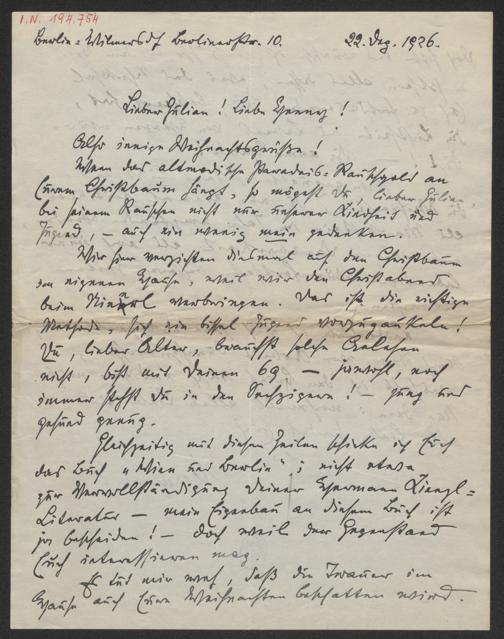 I.N. 194.754
Berlin-Wilmersdf Berlinerstr. 10. 22. Dez. 1926.
Lieber Julian! Liebe Jenny!
Also innige Weihnachtsgrüße!
Wenn das altmodische Paradeis-Rauschgold an
Eurem Christbaum hängt, so mögest Du, lieber Julian,
bei seinem Rauschen nicht nur unserer Kindheit und
Jugend, – auch ein wenig mein gedenken.
Wir hier verzichten diesmal auf den Christbaum
im eigenen Hause, weil wir den Christabend
beim verbringen. Das ist die richtige
Methode, sich ein bissel Jugend vorzugaukeln!
Du, lieber Alter, brauchst solche
nicht, bist mit Deinen 69 – jawohl, noch
immer stehst Du in den Sechzigern! – jung und
gesund genug.
Gleichzeitig mit diesen Zeilen schicke ich Euch
das Buch „Wien und Berlin"; nicht etwa
zur Vervollständigung Deiner Hermann Kienzl-
Literatur – mein Eigenbau an diesem Buch ist
ja bescheiden! – doch weil der Gegenstand
Euch interessieren mag.
Es tut mir weh, daß die Trauer im
Hause auch Eure Weihnachten beschatten wird.